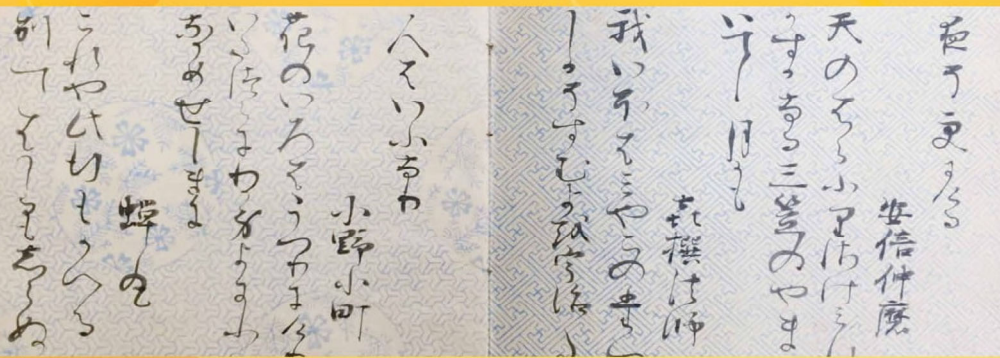 夜そ更にける
安倍仲麿
天のはらふりさけみれ
かすかなる三笠のやま
いてし月かも
喜撰法師
我いほはみやこの
しかそすむよを宇治と
人はいふなり
小野小町
花のいろはうつりにけ
いたつらにわか身よにふ
なかめせしまに
蝉丸
これや此行もかへる
別てはしるもしらぬ